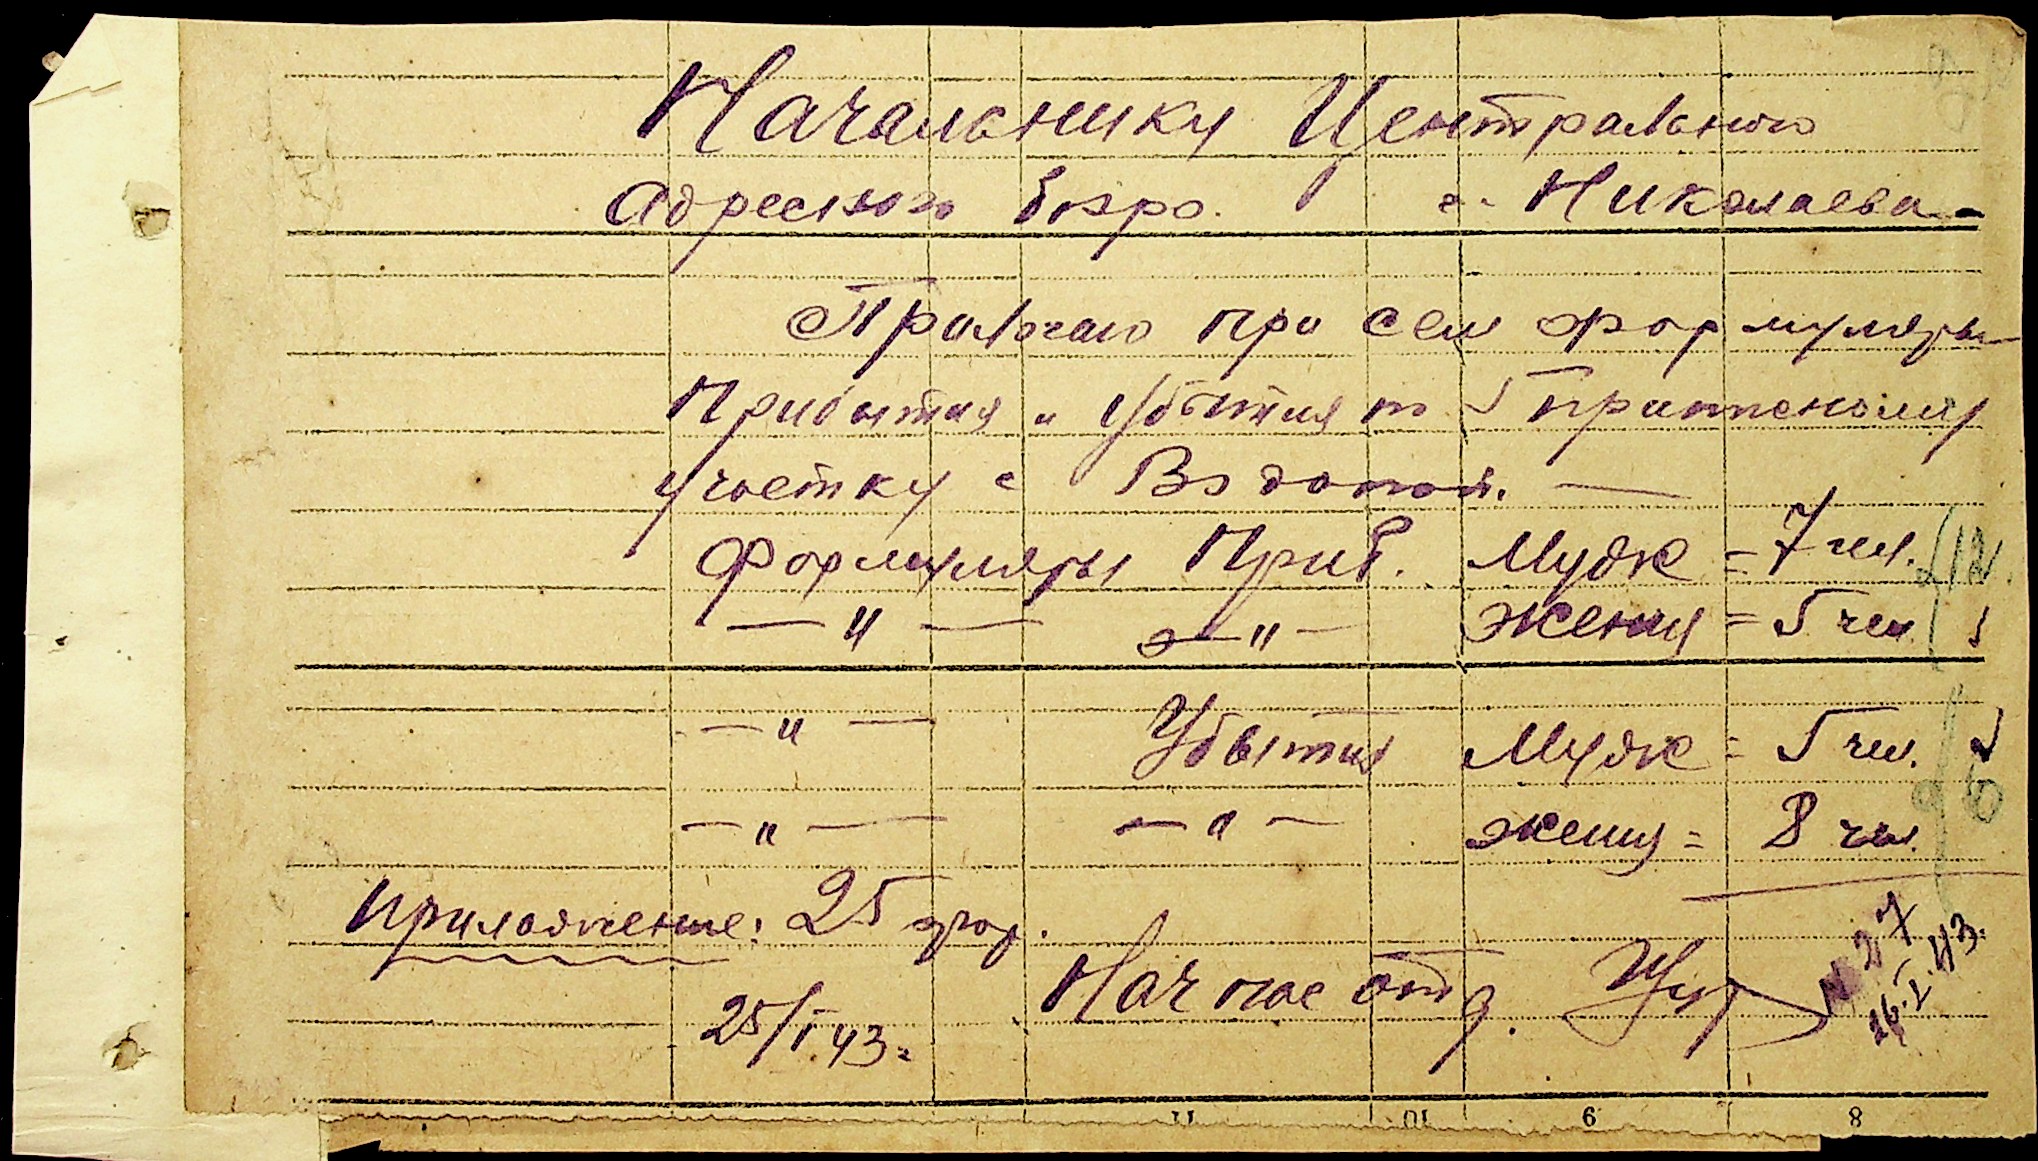 Начальнику Центрального
Адресного бюро. г. Николаева
Прилагаю при сем формуляры
Прибытия и Убытия по 5
участку с
Формуляры Приб. Мужс = 7 чел. 12.
— " — — " — женщ = 5 чел
— " — Убытия Мужс = 5 чел.
— " — — " — женщ = 8 чел.
Приложение: 25 фор.
Нач пас отд.
25/I 43г
N 27
26.I.43.
11 10 9 8